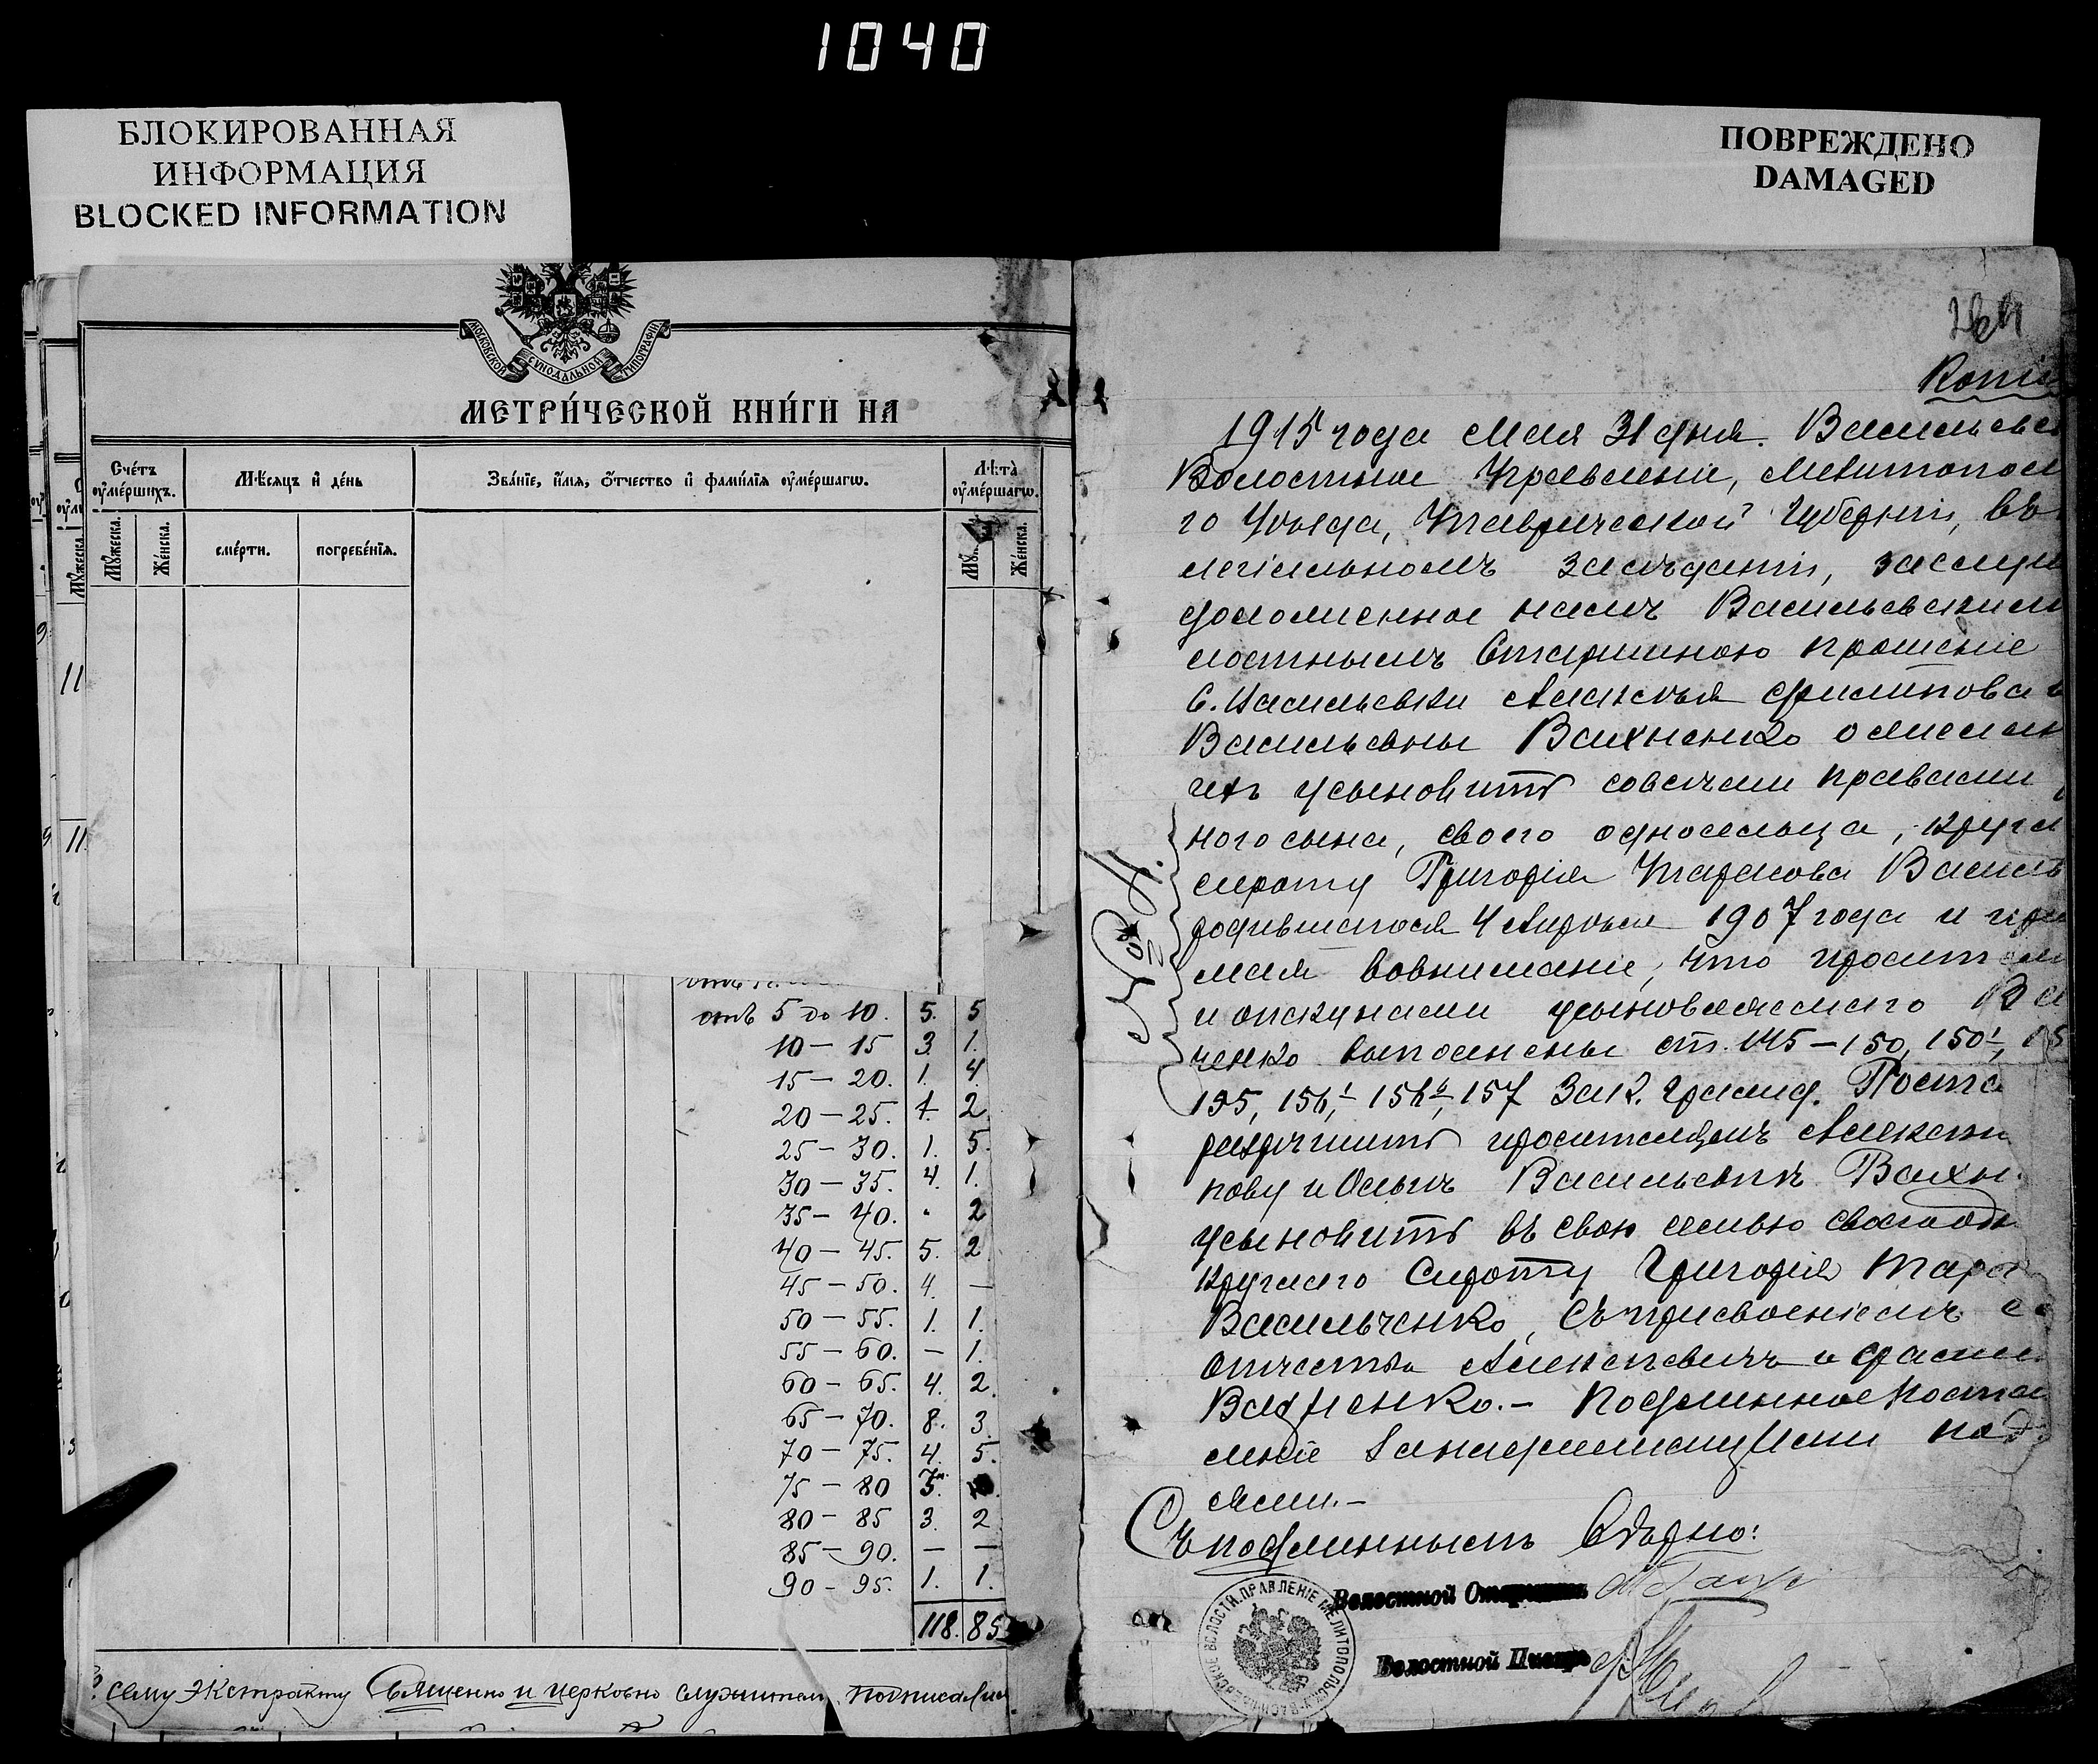 1040
БЛОКИРОВАННАЯ
ИНФОРМАЦИЯ
BLOCKED INFORMATION
ПОВРЕЖДЕНО
DAMAGED
МОСКОВСКОЙ СѴНОДАЛЬНОЙ ТИПОГРАФІИ
МЕТРИ́ЧЕСКОЙ КНИ́ГИ НА
Сче́тъ ᲂу҆ме́ршихъ.
Мѣ́сяцъ и҆ де́нь
Зва́нїе, и҆́мѧ, ѻ҆́тчество и҆ фами́лїѧ ᲂу҆ме́ршагѡ.
Лѣта̀ ᲂу҆ме́ршагѡ.
Мꙋ́жеска.
Же́нска.
сме́рти.
погребе́нїѧ.
Же́нска.
отъ 5 до 10. 5. 5
10 — 15 3. 1.
15 — 20. 1. 4.
20 — 25. 1. 2.
25 — 30. 1. 5.
30 — 35. 4. 1.
35 — 40. 2
40 — 45. 5. 2
45 — 50. 4. —
50 — 55. 1. 1.
55 — 60. — 1.
60 — 65. 4. 2.
65 — 70. 8. 3.
70 — 75. 4. 5.
75 — 80
80 — 85 3. 2
85 — 90. — —
90 — 95. 1. 1.
118. 85
сему Экстракту Священно и церковно служители подписались
264
Копія
1915 года Мая 31 дня. Васильевс
Волостное Правленіе, Мелитопол
го Уѣзда, Таврической Губерніи, въ
легіальномъ засѣданіи, заслуш
доложенное намъ Васильевским
лостнымъ Старшиною прошеніе
С. Васильевки Алексѣя Филиппова и
Васильевны Вахненко о желан
ихъ усыновить со всѣми правами
ного сына, своего односельца, кругл
сироту Григорія Тарасова Василь
родившагося 4 Апрѣля 1907 года и при
мая во вниманіе, что просителями
и опекунами усыновляемаго Ва
ченко выполнены ст. 145 — 150, 150¹, 15
155, 156¹, 156², 157 Зак. Гражд. Поста
разрѣшить просителямъ Алексѣю
пову и Ольгѣ Васильевнѣ Вахн
усыновить въ свою семью своего одн
круглаго Сироту Григорія Тарас
Васильченко, съ присвоеніемъ е
отчества Алексѣевичъ и фамил
Вахненко. — Подлинное Поста
леніе за надлежащими под
сями. —
Съ подлиннымъ Вѣрно:
Волостной Старшина
Волостной Писарь